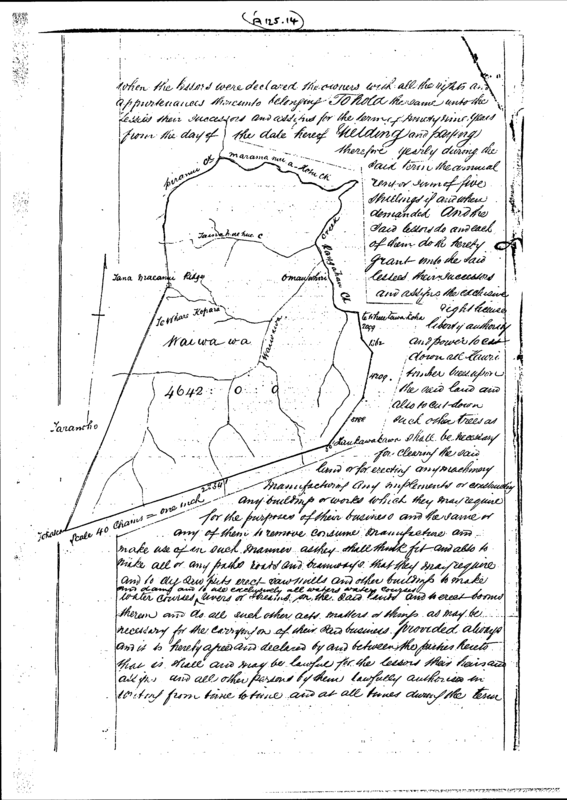 (A 125.14)
when the lessors were declared the owners with all the rights and
appurtenances thereunto belonging To hold the same unto the
lessees their successors and assigns for the term of Ninety nine years
from the day of the date hereof Yielding and paying
therefore yearly during the
said term the annual
rent or sum of five
shillings if and when
demanded And the
said lessors do and each
of them do the hereby
grant unto the said
lessees their successors
and assigns the exclusive
right license
liberty authority
and power to cut
down all Kauri
timber trees upon
the said land and
also to cut down
such other trees as
shall be necessary
for clearing the said
land or for erecting any machinery
Manufacturing any implements or constructing
any buildings or works which they may require
for the purposes of their business and the same or
any of them to remove consume manufacture and
make use of in such manner as they shall think fit and also to
make all or any paths roads and tramways that they may require
and to dig Saw pits erect sawmills and other buildings to make
and dams and to use exclusively all waters water courses
water courses rivers or streams on the said lands and to erect booms
thereon and do all such other acts matters or things as may be
necessary for the carrying on of their said business provided always
and it is hereby agreed and declared by and between the parties hereto
that is shall and may be lawful for the lessors their heirs and
assigns and all other persons by them lawfully authorised in
writing from time to time and at all times during the term
Creek
Tana Macanui Ridge
Omauwhori
Te Whare Kopara
Wai wa wa
Waiwawa
4642 : 0 : 0
Scale 40 Chains = one inch